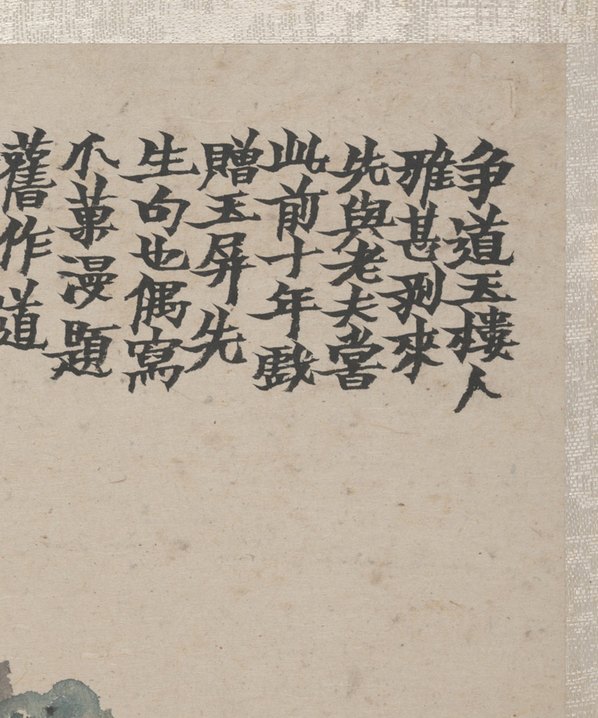 争道玉樓人
雅甚剥來
先與老夫嘗
此前十年戲
贈玉屏先
生句也偶寫
瓜菓漫題
舊作道